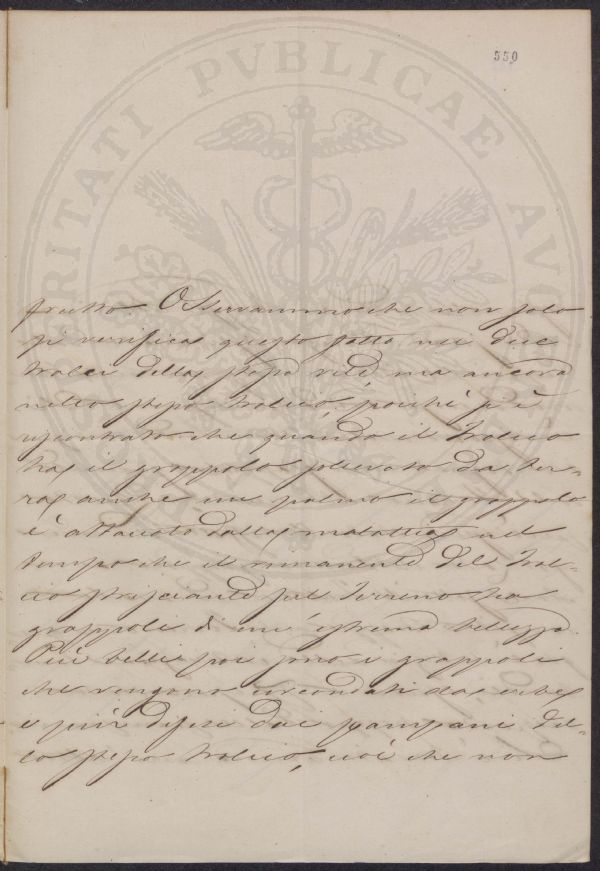 550
PROSPERITATI PVBLICAE AVGENDAE
frutto. Osservammo che non solo
si verifica questo fatto nei due
tralci della stessa vite ma ancora
nello stesso tralcio, poiché si è
riscontrato che quando il tralcio
ha il grappolo sollevato da ter-
ra anche un palmo il grappolo
è attaccato dalla malattia nel
tempo che il rimanente del tral-
cio strisciante sul terreno ha
grappoli di un'estrema bellezza.
Più belli poi sono i grappoli
che vengono circondati da erbe
e più difesi dai pampani del-
lo stesso tralcio, ciò che non